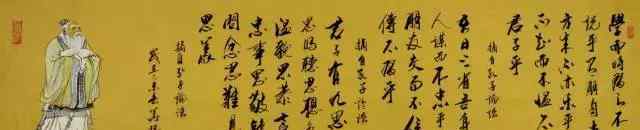 學而時習之不
說乎有朋自遠
方來不亦樂乎
不知而不慍不
君子乎
摘自孔子論語
吾日三省吾身
人謀而不忠乎
朋友交而不信
傳不習乎
摘自孔子論語
君子有九思
思明聽思聰
溫貌思恭言
忠事思敬疑
問忿思難見
思義
摘自孔子論語